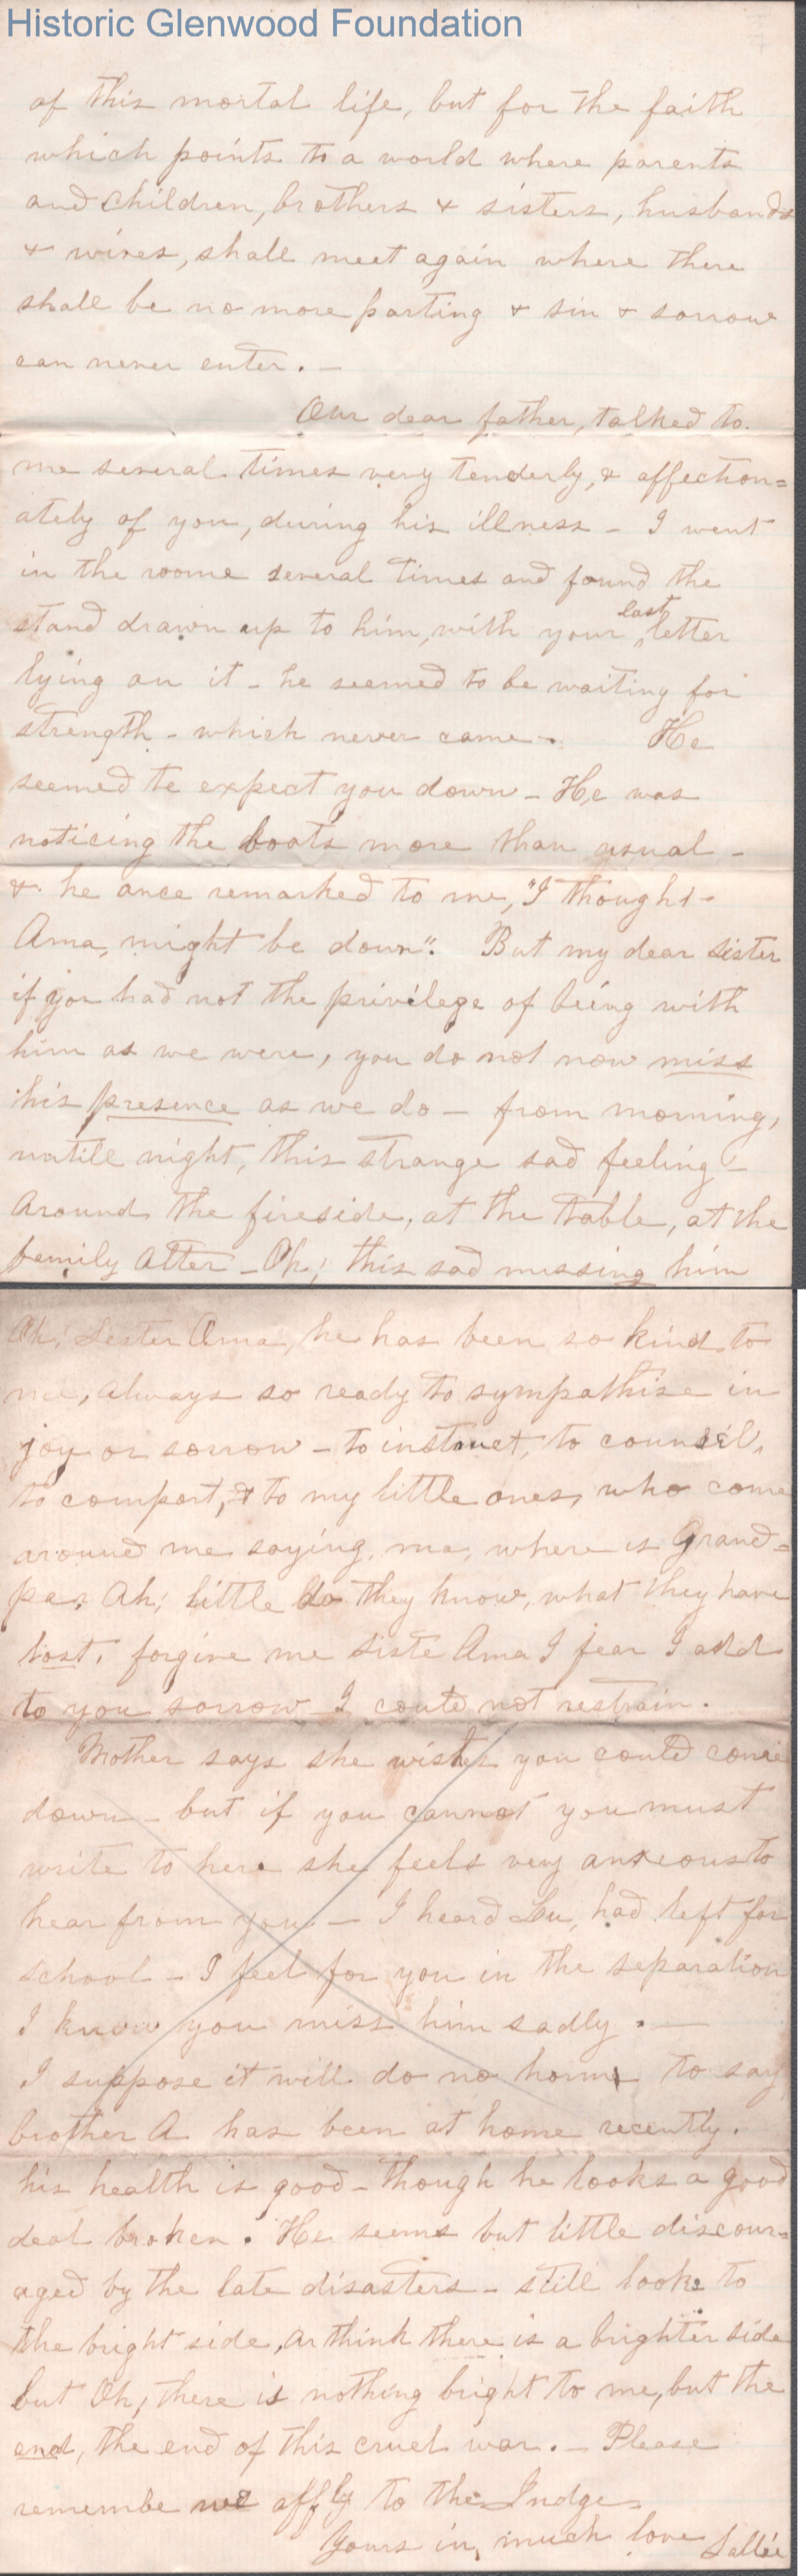 Historic Glenwood Foundation
of this mortal life, but for the faith
which points to a world where parents
and children, brothers & sisters, husbands
& wives, shall meet again where there
shall be no more parting & sin & sorrow
can never enter. –
Our dear father, talked to
me several times very tenderly, & affection=
ately of you, during his illness – I went
in the roome several times and found the
stand drawn up to him, with your last letter
lying on it – he seemed to be waiting for
strength – which never came. He
seemed to expect you down – He was
noticing the boats more than usual –
& he once remarked to me, "I thought
Ama, might be down". But my dear sister
if you had not the privilege of being with
him as we were, you do not now miss
his presence as we do – from morning,
untill night, this strange sad feeling –
Around the fireside, at the table, at the
family alter – Oh, this sad missing him
Oh! Sister Ama, he has been so kind to
me, always so ready to sympathise in
joy or sorrow – to instruct, to counsil,
to comfort, & to my little ones, who come
around me saying, ma, where is Grand=
pa, Ah, little do they know, what they have
lost. forgive me siste Ama I fear I add
to you sorrow I could not restrain.
Mother says she wishes you could come
down – but if you cannot you must
write to here she feels very anxeous to
hear from you – I heard Lu, had left for
school – I feel for you in the separation
I know you miss him sadly. –
I suppose it will do no harm to say
brother A has been at home recently.
his health is good – though he looks a good
deal broken. He seems but little discour=
aged by the late disasters – still looks to
the bright side, or think there is a brighter side
but Oh, there is nothing bright to me, but the
end, the end of this cruel war. – Please
remembe me affly to the Judge
Yours in, much love Sallie